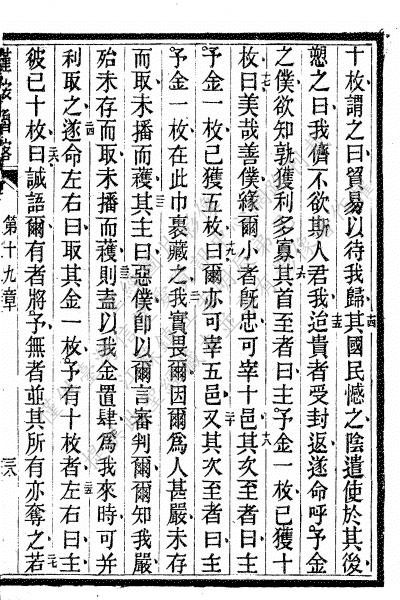 十枚謂之曰貿易以待我歸其國民憾之陰遣使於其後
愬之曰我儕不欲斯人君我迨貴者受封返遂命呼予金
之僕欲知孰獲利多寡其首至者曰主予金一枚已獲十
枚曰美哉善僕緣爾小者旣忠可宰十邑其次至者曰主
予金一枚已獲五枚曰爾亦可宰五邑又其次至者曰主
予金一枚在此巾裹藏之我實畏爾因爾爲人甚嚴未存
而取未播而穫其主曰惡僕卽以爾言審判爾爾知我嚴
殆未存而取未播而穫則盍以我金置肆爲我來時可幷
利取之遂命左右曰取其金一枚予有十枚者左右曰主
彼已十枚曰誠語爾有者將予無者並其所有亦奪之若
第十九章